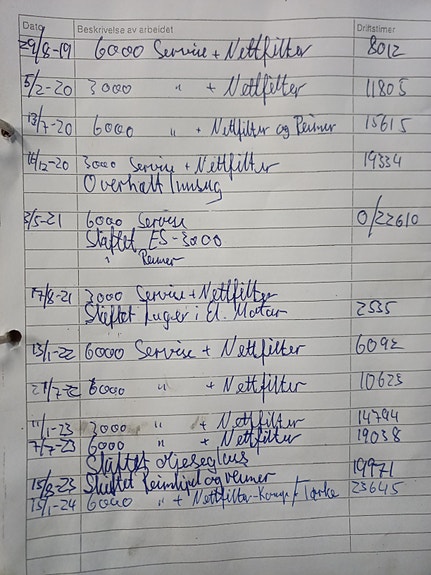 Dato Beskrivelse av arbeidet Driftstimer
29/8-19 6000 Service + Nettfilter 8012
5/2-20 3000 " + Nettfilter 11805
13/7-20 6000 " + Nettfilter og Reimer 15615
16/12-20 3000 Service + Nettfilter 19334
Overhalt Innsug
3/5-21 6000 Service 0/22610
Skiftet ES-3000
" Reimer
17/8-21 3000 Service + Nettfilter
Skiftet Lager i El. Motor 2535
13/1-22 6000 Service + Nettfilter 6092
/7-22 6000 " + Nettfilter 10623
11/1-23 3000 " + Nettfilter 14794
7/7-23 6000 " + Nettfilter 19038
Skiftet oljeseglass
15/8-23 Skiftet Reimhjul og reimer 19971
15/1-24 6000 " + Nettfilter-Komp/Tørke 23645